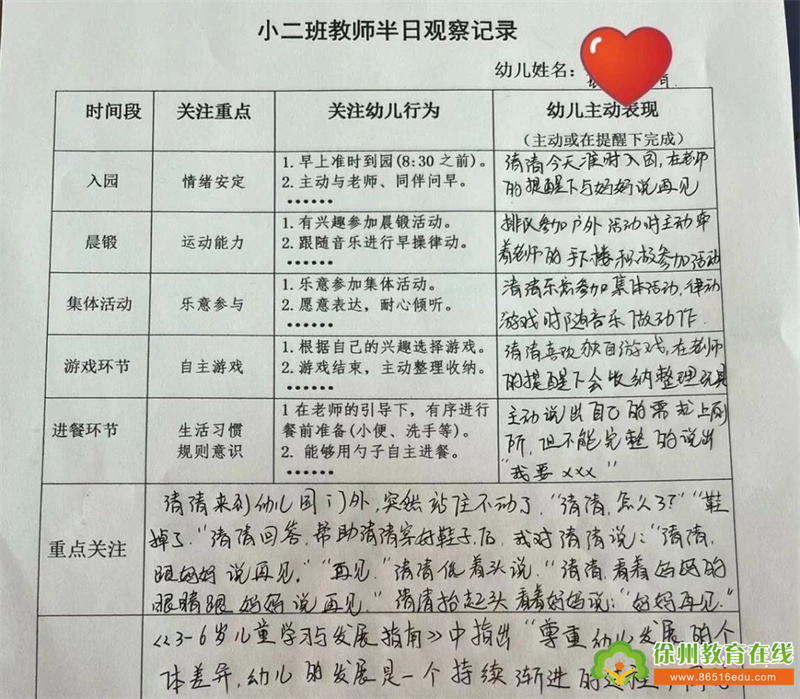 小二班教师半日观察记录
幼儿姓名:
时间段 关注重点 关注幼儿行为 幼儿主动表现
(主动或在提醒下完成)
入园 情绪安定
1. 早上准时到园(8:30 之前)。
2. 主动与老师、同伴问早。
......
清清今天准时入园,在老师
的提醒下与妈妈说再见
晨锻 运动能力
1. 有兴趣参加晨锻活动。
2. 跟随音乐进行早操律动。
......
排队参加户外活动时主动牵
着老师的手下楼积极参加活动
集体活动 乐意参与
1. 乐意参加集体活动。
2. 愿意表达,耐心倾听。
......
清清乐意参加集体活动,律动
游戏时随音乐做动作.
游戏环节 自主游戏
1. 根据自己的兴趣选择游戏。
2. 游戏结束,主动整理收纳。
......
清清喜欢独自游戏,在老师
的提醒下会收纳整理玩具
进餐环节 生活习惯
规则意识
1 在老师的引导下,有序进行
餐前准备(小便、洗手等)。
2. 能够用勺子自主进餐。
......
主动说出自己的需求上厕
所,但不能完整的说出
“我要xxx”
重点关注
清清来到幼儿园门外,突然站住不动了,“清清,怎么了?”“鞋
掉了.”清清回答,帮助清清穿好鞋子后,我对清清说:“清清,
跟妈妈说再见.”“再见.”清清低着头说.“清清,看着妈妈的
眼睛跟妈妈说再见.”清清抬起头看着妈妈说:“妈妈再见.”
《3-6岁儿童学习与发展指南》中指出“尊重幼儿发展的个
体差异,幼儿的发展是一个持续渐进的过程
徐州教育在线
www.86516edu.com